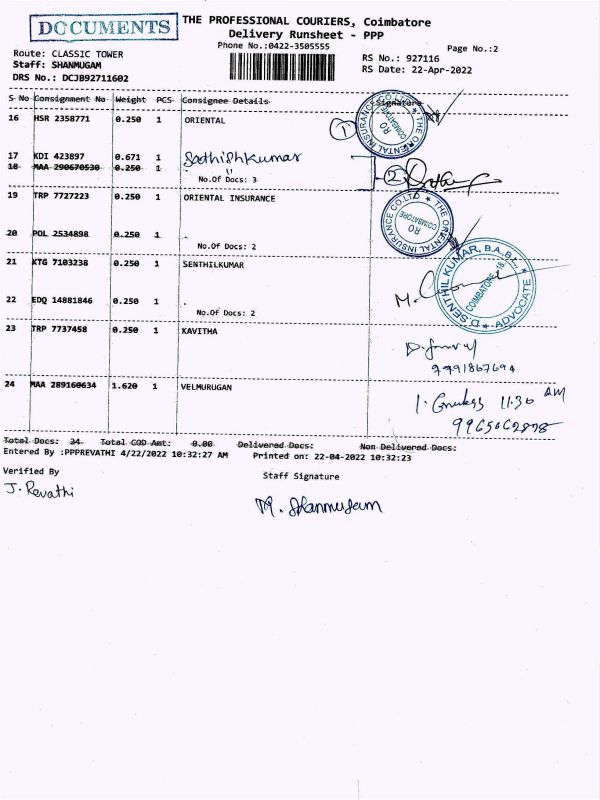 DOCUMENTS
THE PROFESSIONAL COURIERS, Coimbatore
Delivery Runsheet - PPP
Phone No.:0422-3505555
Page No.:2
Route: CLASSIC TOWER
RS No.: 927116
Staff: SHANMUGAM
RS Date: 22-Apr-2022
DRS No.: DCJB92711602
S No Consignment No Weight PCS Consignee Details Signature
16 HSR 2358771 0.250 1 ORIENTAL
1
THE ORIENTAL INSURANCE CO.LTD RO COIMBATORE
17 KDI 423897 0.671 1 Sathishkumar
18 MAA 290670530 0.250 1 "
2
No.Of Docs: 3
19 TRP 7727223 0.250 1 ORIENTAL INSURANCE
THE ORIENTAL INSURANCE CO.LTD RO COIMBATORE
20 POL 2534898 0.250 1 .
No.Of Docs: 2
21 KTG 7103238 0.250 1 SENTHILKUMAR
D. SENTHIL KUMAR, B.A.B.L. ADVOCATE COIMBATORE-18
22 EDQ 14881846 0.250 1 .
No.Of Docs: 2
23 TRP 7737458 0.250 1 KAVITHA
24 MAA 289160634 1.620 1 VELMURUGAN
11.30 AM
Total Docs: 24 Total COD Amt: 0.00 Delivered Docs: Non Delivered Docs:
Entered By :PPPREVATHI 4/22/2022 10:32:27 AM Printed on: 22-04-2022 10:32:23
Verified By
Staff Signature
J. Revathi
M. Shanmugam